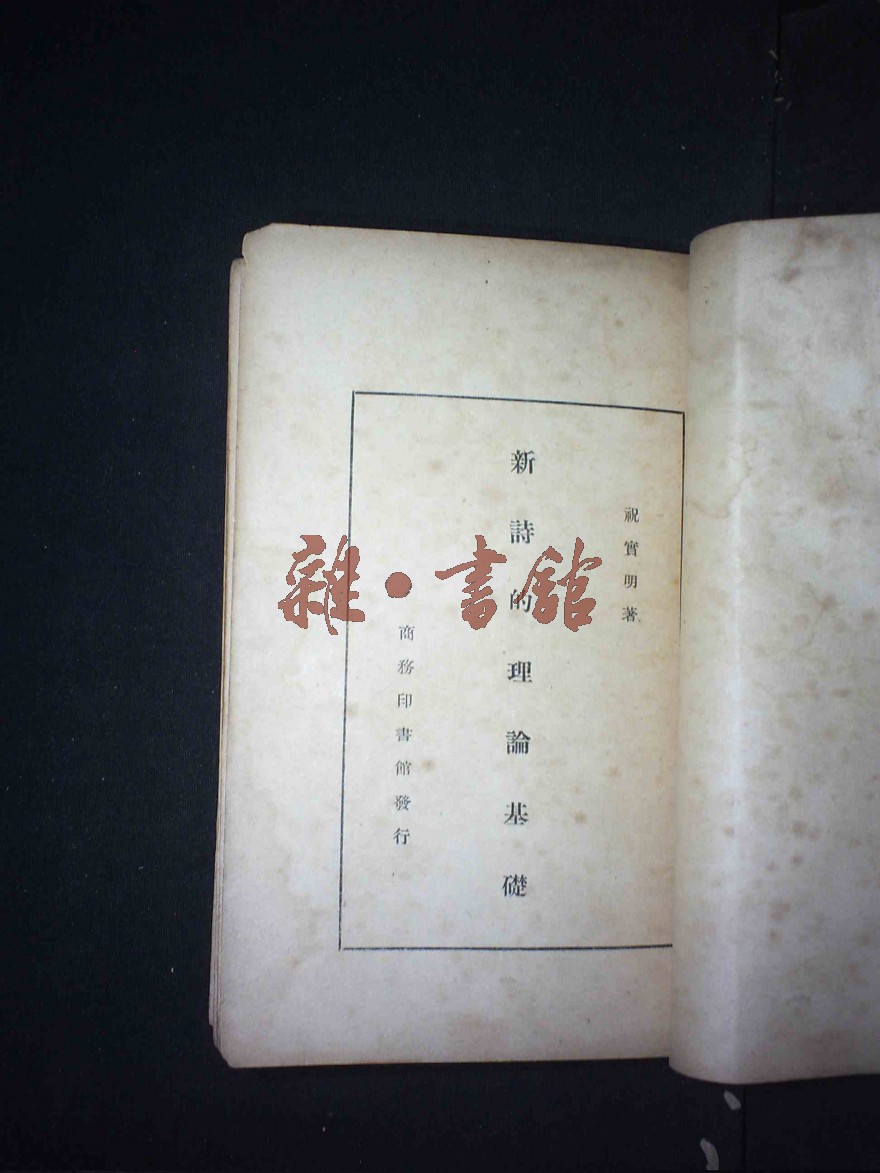 祝實明著
新詩的理論基礎
商務印書館發行
雜•書館